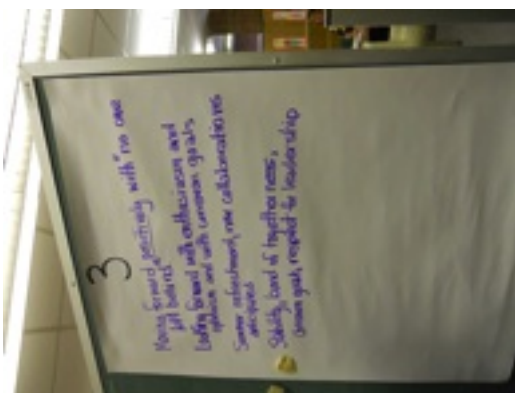 3
Moving forward positively with "no one
left behind"
Looking forward with enthusiasm and
optimism and with common goals
Summer refreshment, new collaborations
anticipated
Stability, bond of togetherness,
common goals, respect for leadership